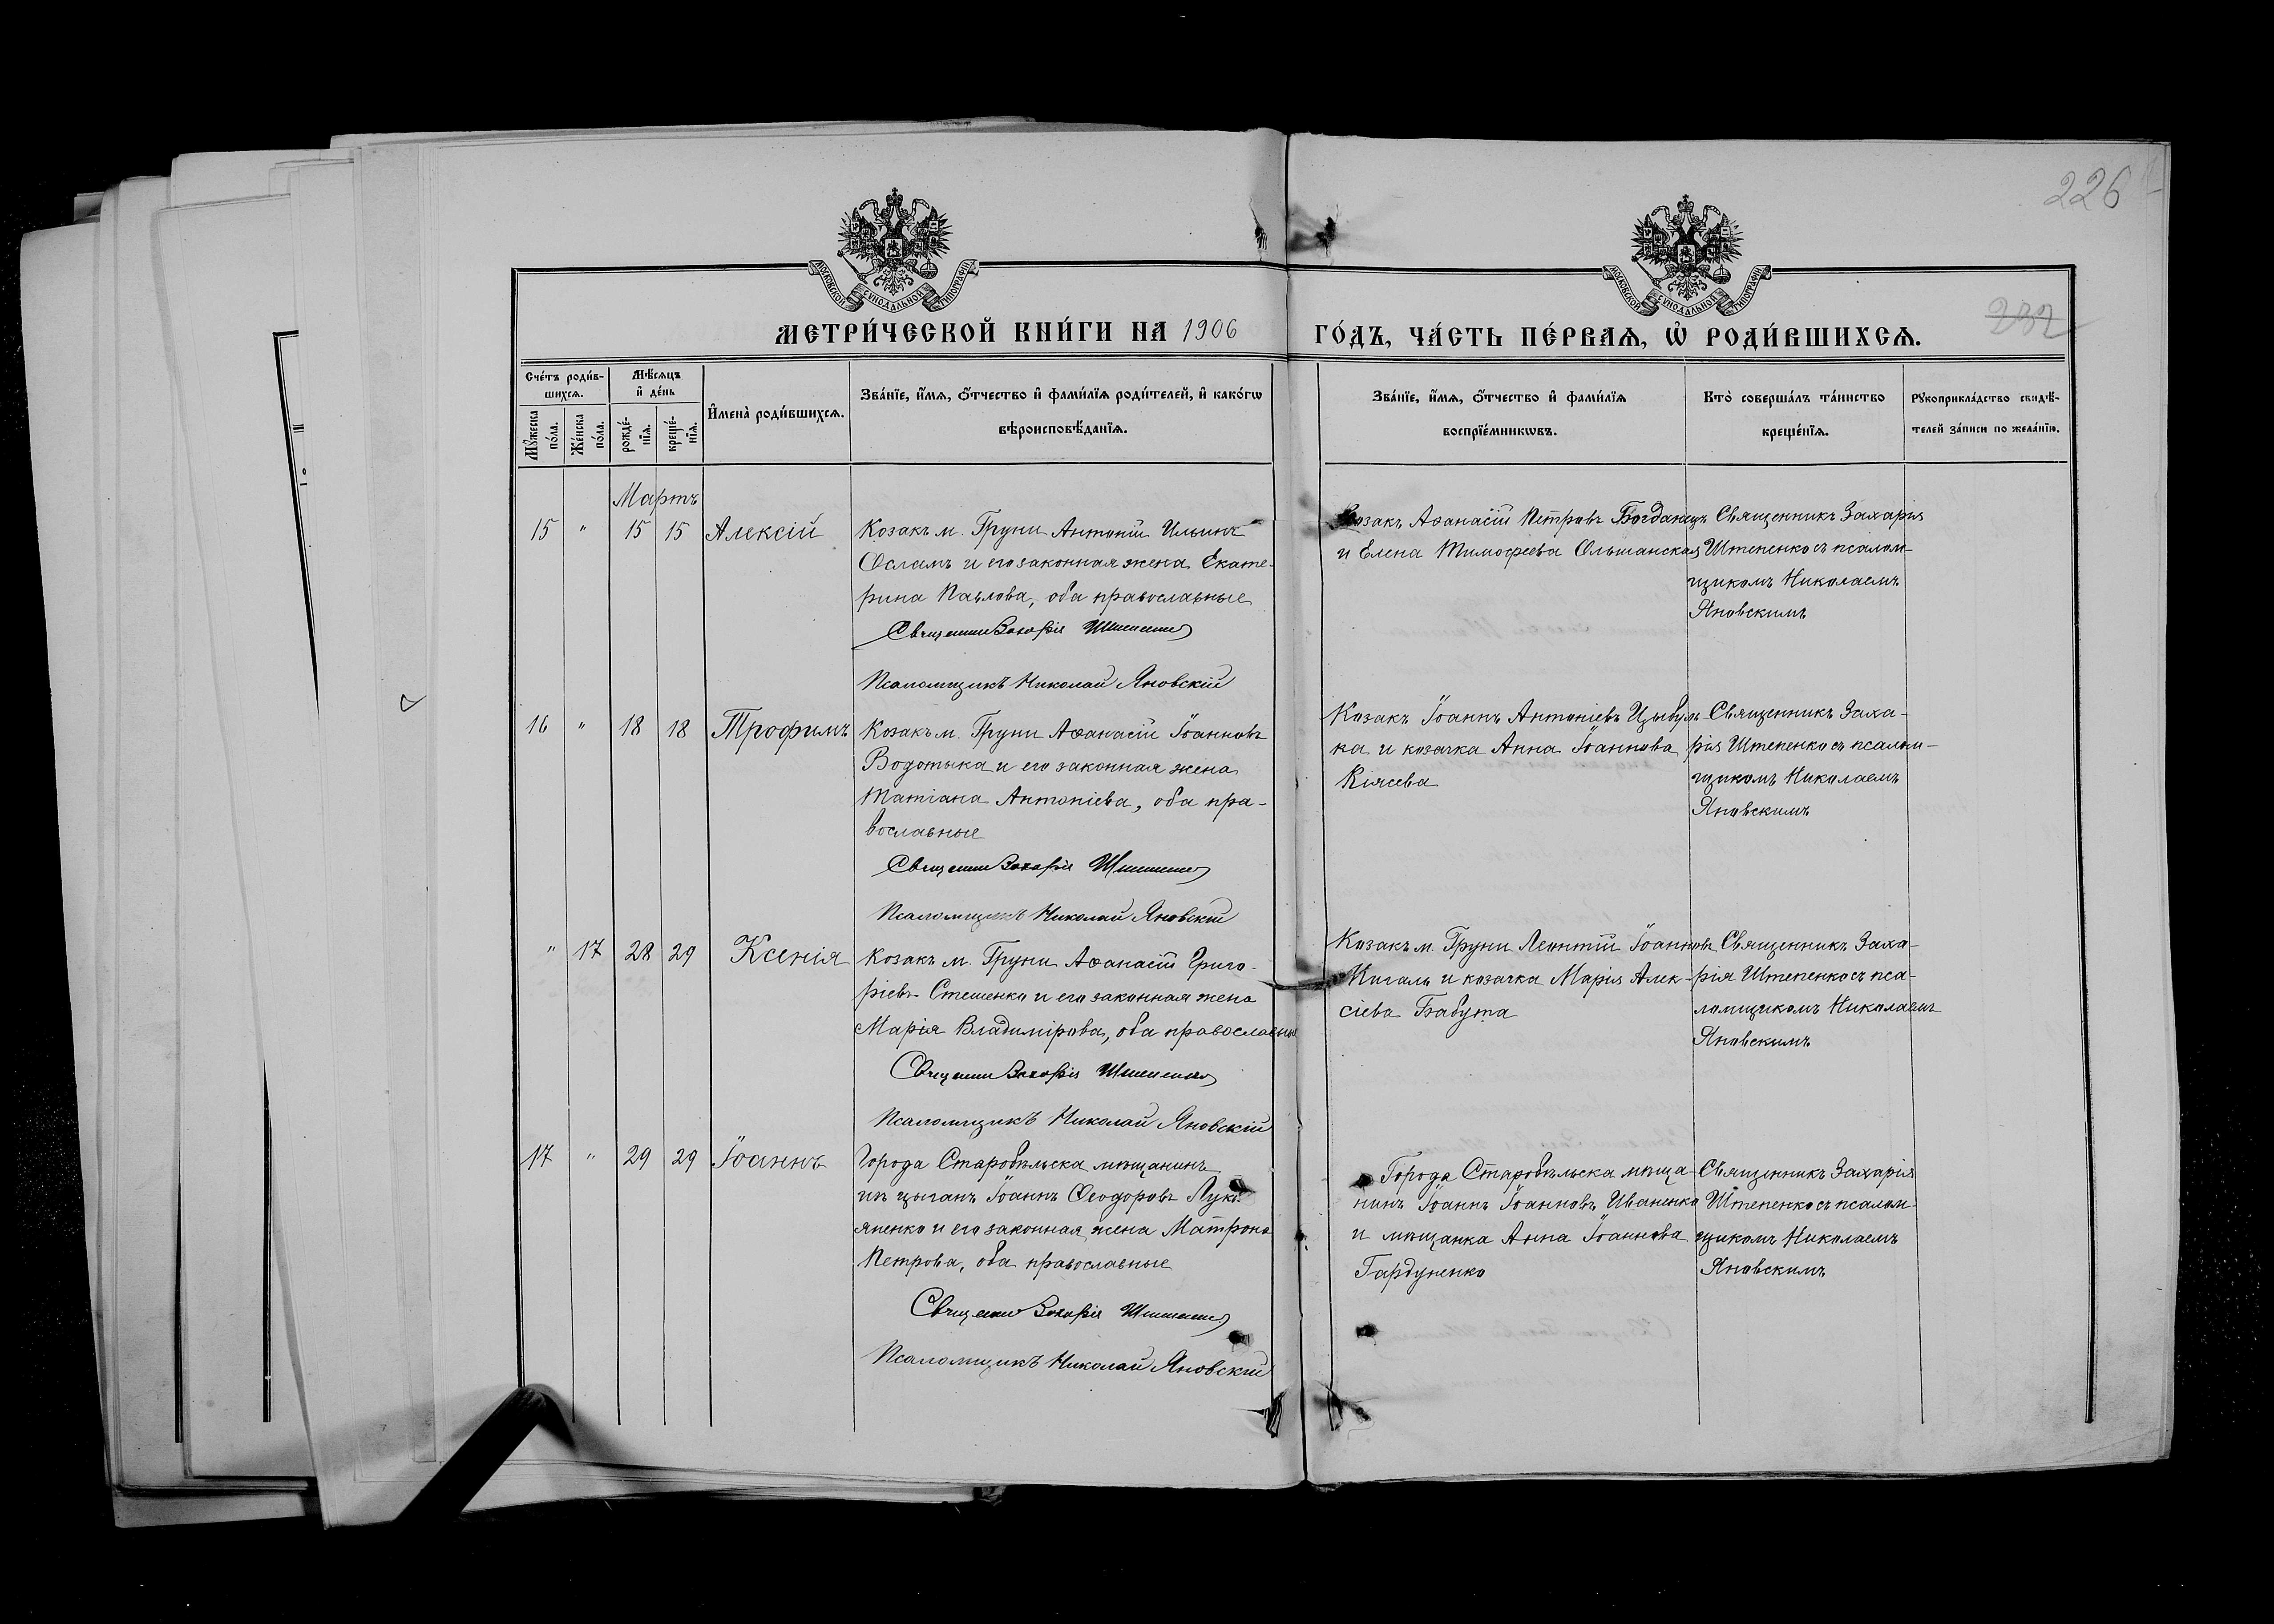 226
232
МОСКОВСКОЙ СѴНОДАЛЬНОЙ ТИПОГРАФІИ
МОСКОВСКОЙ СѴНОДАЛЬНОЙ ТИПОГРАФІИ
МЕТРИ́ЧЕСКОЙ КНИ́ГИ НА 1906
ГО́ДЪ, ЧА́СТЬ ПЕ́РВАѦ, Ѡ҆ РОДИ́ВШИХСѦ.
Сче́тъ роди́в-
шихсѧ.
Мꙋ́жеска
по́ла.
Же́нска
по́ла.
Мѣ́сѧцъ
и҆ де́нь
рожде́-
нїѧ.
креще́-
нїѧ.
И҆мена̀ роди́вшихсѧ.
Зва́нїе, и҆́мѧ, ѻ҆́тчество и҆ фами́лїѧ роди́телей, и҆ како́гѡ
вѣроисповѣ́данїѧ.
Зва́нїе, и҆́мѧ, ѻ҆́тчество и҆ фами́лїѧ
воспрїе́мникѡвъ.
Кто̀ соверша́лъ та́инство
креще́нїѧ.
Рꙋкоприкла́дство свидѣ́-
телей за́писи по жела́нїю.
Мартъ
15 " 15 15 Алексій
Козакъ м. Груни Антоній Ильинъ
Осламъ и его законная жена Екате-
рина Павлова, оба православные
Священникъ Захарія Штепенко
Псаломщикъ Николай Яновскій
Козакъ Аѳанасій Петровъ Богданецъ
и Елена Тимоѳеева Ольшанская
Священникъ Захарія
Штепенко съ псалом-
щикомъ Николаемъ
Яновскимъ
16 " 18 18 Трофимъ
Козакъ м. Груни Аѳанасій Іоанновъ
Водотыка и его законная жена
Татіана Антоніева, оба пра-
вославные
Священникъ Захарія Штепенко
Псаломщикъ Николай Яновскій
Козакъ Іоаннъ Антоніевъ Цыбуль-
ка и козачка Анна Іоаннова
Киясева
Священникъ Заха-
рія Штепенко съ псалом-
щикомъ Николаемъ
Яновскимъ
" 17 28 29 Ксенія
Козакъ м. Груни Аѳанасій Григо-
ріевъ Стешенко и его законная жена
Марія Владимірова, оба православные
Священникъ Захарія Штепенко
Псаломщикъ Николай Яновскій
Козакъ м. Груни Леонтій Іоанновъ
Кигаль и козачка Марія Алек-
сіева Бабута
Священникъ Заха-
рія Штепенко съ пса-
ломщикомъ Николаемъ
Яновскимъ
17 " 29 29 Іоаннъ
Города Старобѣльска мѣщанинъ
изъ цыганъ Іоаннъ Ѳеодоровъ Лукь-
яненко и его законная жена Матрона
Петрова, оба православные
Священникъ Захарія Штепенко
Псаломщикъ Николай Яновскій
Города Старобѣльска мѣща-
нинъ Іоаннъ Іоанновъ Иваненко
и мѣщанка Анна Іоаннова
Гардуненко
Священникъ Захарія
Штепенко съ псалом-
щикомъ Николаемъ
Яновскимъ